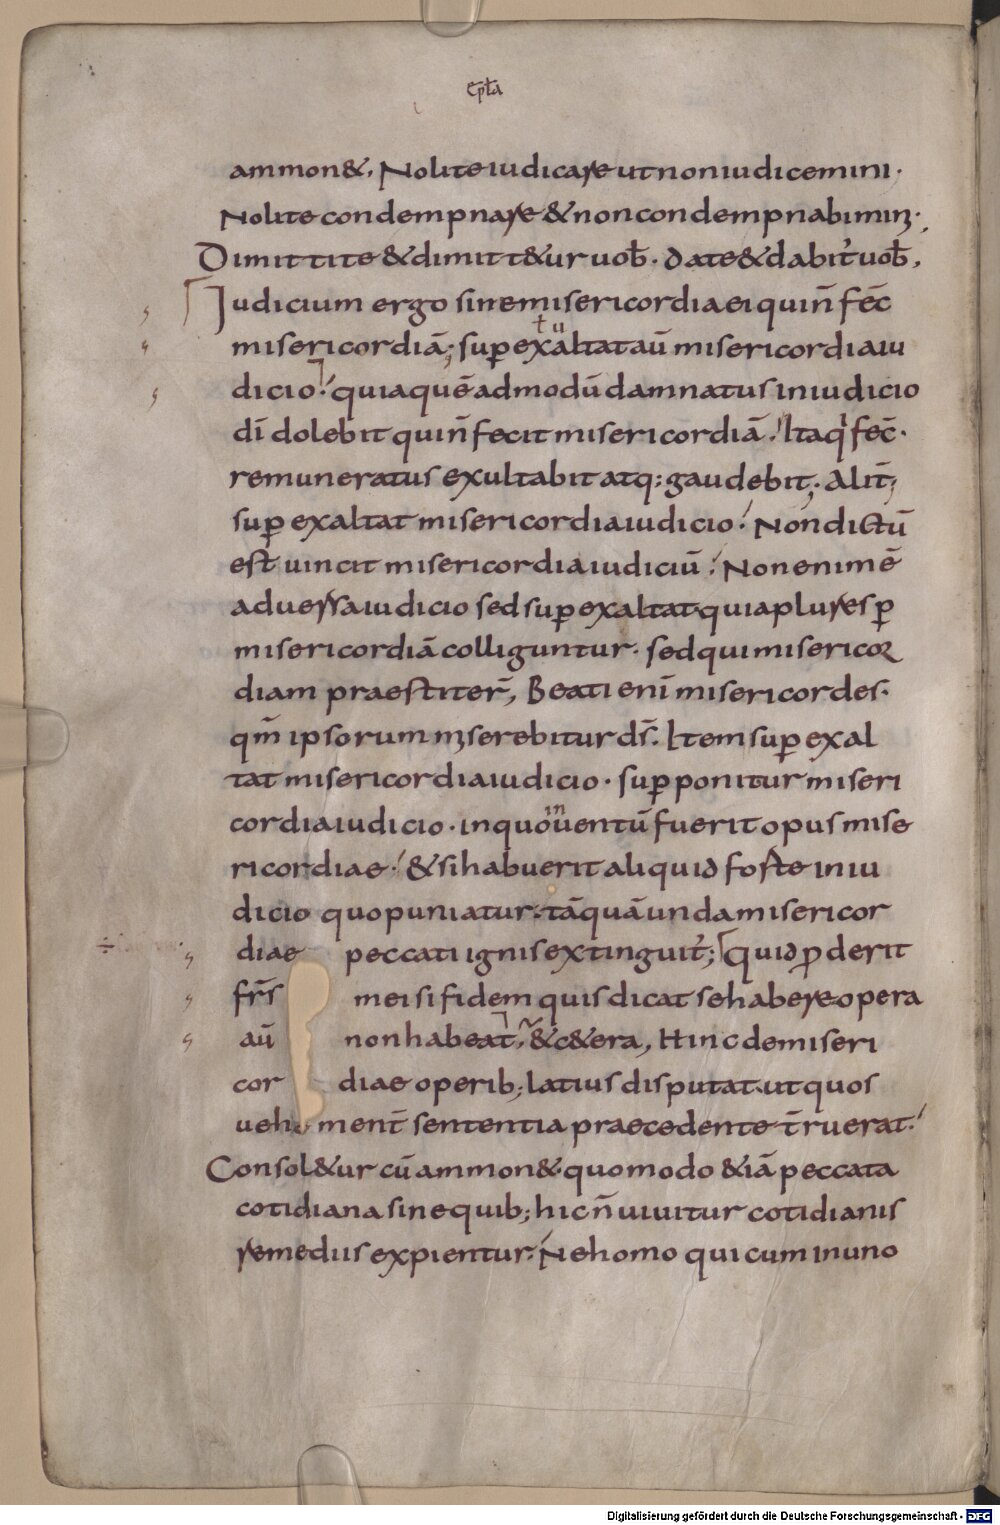 epła
ammon&. Nolite iudicare ut non iudicemini.
Nolite condempnare & non condempnabimini.
Dimittite & dimitt&ur uob̄. date & dabit᷑ uob̄,
Iudicium ergo sine misericordia ei qui n̄ fēc
misericordiā; suꝑexaltat aū misericordia iu
ł u
dicio. quia quē admodū damnatus in iudicio
dī dolebit qui n̄ fecit misericordiā. Ita qͥ fēc.
remuneratus exultabit atq: gaudebit; Alit̄;
suꝑ exaltat misericordia iudicio. Non dictū
est uincit misericordia iudiciū. Non enim ē
aduersa iudicio sed suꝑexaltat. quia plures ꝑ
misericordiā colliguntur. sed qui misericor
diam praestiter̄, Beati enī misericordes.
qm̄ ipsorum miserebitur ds̄. Item suꝑ exal
tat misericordia iudicio. suꝑponitur miseri
cordia iudicio. in quo inuentū fuerit opus mise
ricordiae. & si habuerit aliquid forte in iu
dicio quo puniatur. tā quā unda misericor
diae peccati ignis extinguit᷑; Quid ꝓderit
fr̄s mei si fidem quis dicat se habere opera
aū non habeat, & c&era, Hinc de miseri
cor diae operib; latius disputat. ut quos
uehe ment̄ sententia praecedente t̄ruerat.
Consol&ur cū ammon&. quomodo & iā peccata
cotidiana sine quib; hic n̄ uiuitur cotidianis
remediis expientur. Ne homo qui cum in uno
Digitalisierung gefördert durch die Deutsche Forschungsgemeinschaft - DFG